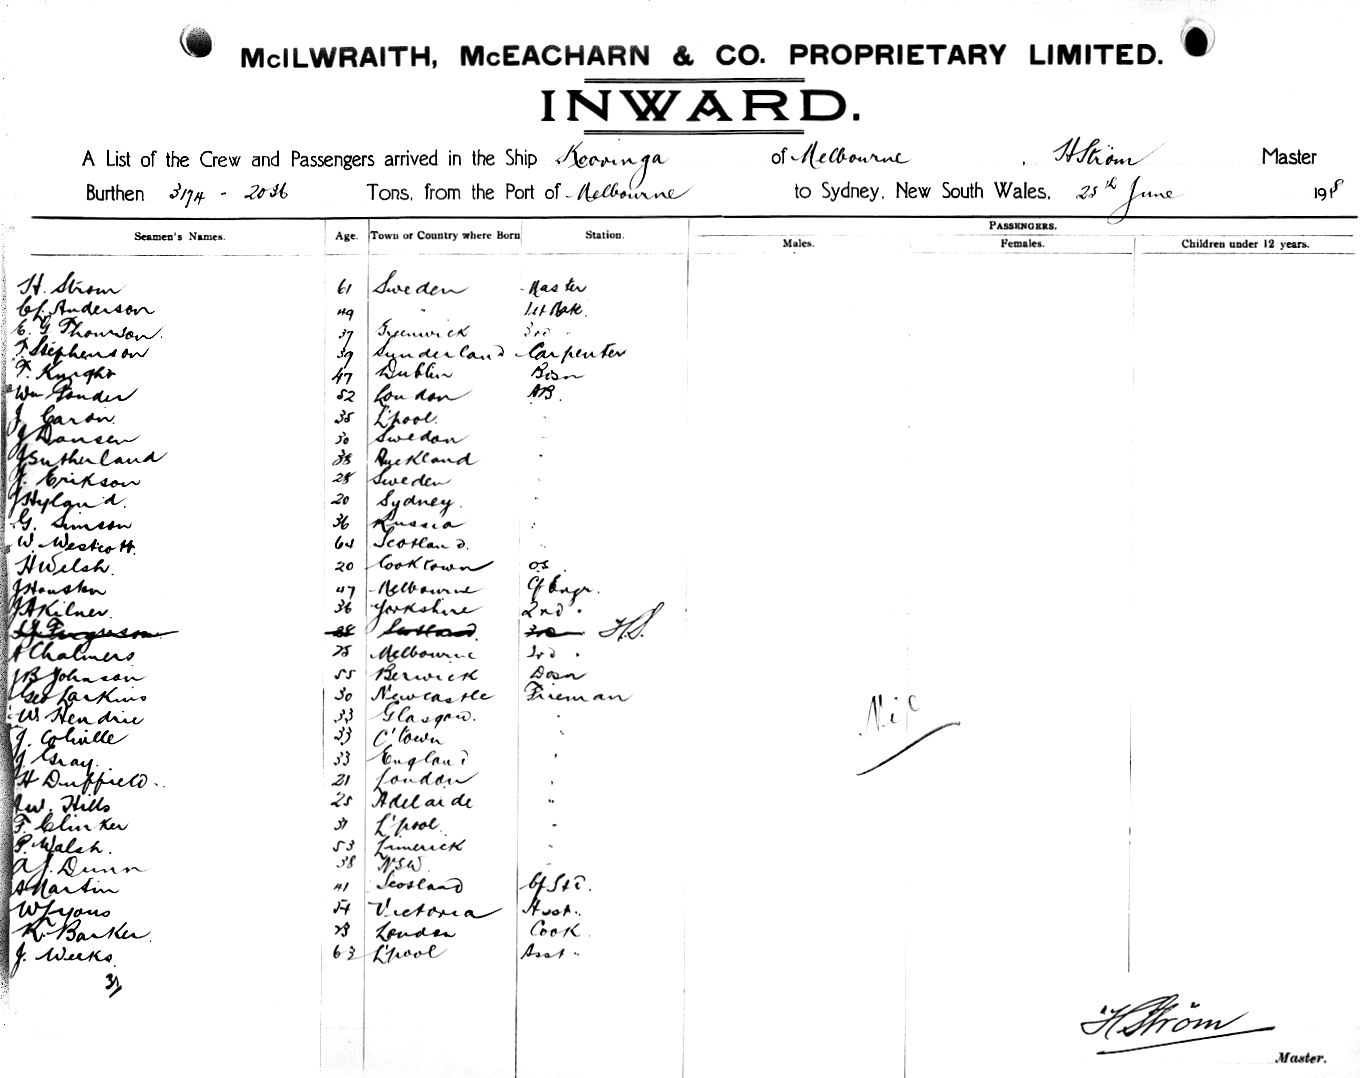 McILWRAITH, McEACHARN & CO. PROPRIETARY LIMITED.
INWARD.
A List of the Crew and Passengers arrived in the Ship Kooringa of Melbourne, H Ström Master
Burthen 3174 - 2036 Tons, from the Port of Melbourne to Sydney, New South Wales, 25th June 1918
PASSENGERS.
Seamen's Names. Age. Town or Country where Born Station. Males. Females. Children under 12 years.
H. Strom 61 Sweden Master
Anderson 49 " 1st Mate
E. G Thomson. 37 Greenwick 3rd "
T Stephenson 39 Sunderland Carpenter
T. Knight 47 Dublin Bosn
Wm Gander 52 London AB.
J. Caron. 35 L'pool. "
J Dansen 30 Swedan "
J Sutherland 38 Auckland "
J. Erikson 28 Sweden "
J Hyland. 20 Sydney. "
G. Simson 36 Russia "
W. Westcott. 64 Scotland. "
H Welsh. 20 Cooktown OS.
J Houston 47 Melbourne Cf Engr.
J A Kilner. 36 Yorkshire 2nd "
Ferguson 28 Scotland 3rd H.S.
A Chalmers 25 Melbourne 3rd "
J B Johnson 55 Berwick
Geo Larkins 30 Newcastle Fireman
W. Hendrie 33 Glasgow. "
J. Colville 33 C'town "
J. Gray. 33 England "
H Duffield. 21 London "
A W. Hills 25 Adelaide "
F. Clinker 31 L'pool. "
P. Walsh. 53 Limerick "
A J. Dunn 38 NSW "
A Martin 41 Scotland Cf Std.
W Lyons 54 Victoria Asst.
K. Barker. London Cook
J. Weeks 63 L'pool Asst.
Nil
31
H Ström
Master.